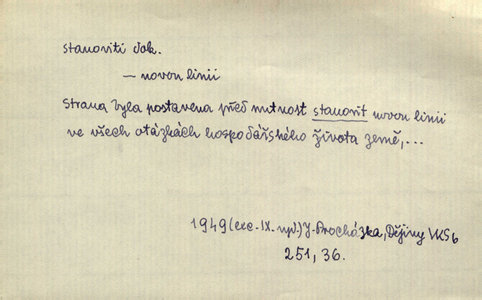 stanoviti dok.
— novou linii
Strana byla postavena před nutnost stanovit novou linii
ve všech otázkách hospodářského života země,...
1949 (exc. IX. up.) J. Procházka, Dějiny VKSb
251, 36.